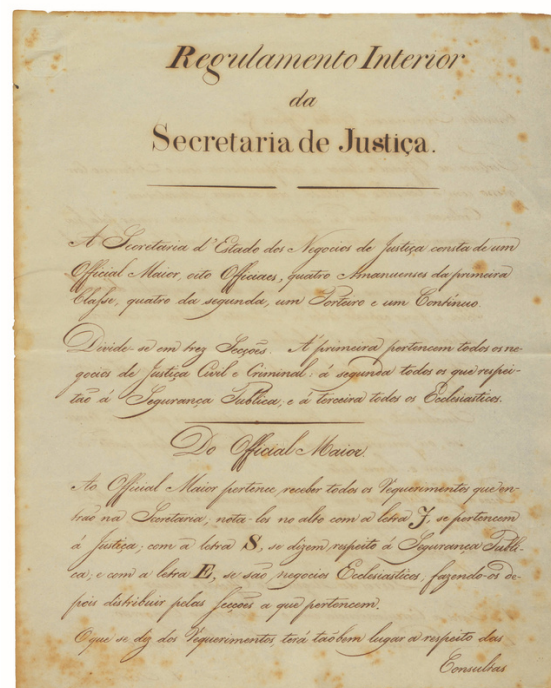 Regulamento Interior
da
Secretaria de Justiça.
A Secretaria d'Estado dos Negocios de Justiça consta de um
Official Maior, oito Officiaes, quatro Amanuenses da primeira
Classe, quatro da segunda, um Porteiro e um Contínuo.
Divide-se em trez Secções. Á primeira pertencem todos os ne-
gocios de Justiça Civil e Criminal; á segunda todos os que respei-
tão á Segurança Publica; e á terceira todos os Ecclesiasticos.
Do Official Maior.
Ao Official Maior pertence, receber todos os Requerimentos que en-
trão na Secretaria, nota-los no alto com a letra J, se pertencem
á Justiça; com a letra S, se dizem respeito á Segurança Publi-
ca; e com a letra E, se são negocios Ecclesiasticos, fazendo-os de-
pois distribuir pelas Secções a que pertencem.
O que se diz dos Requerimentos, terá taobem lugar a respeito das
Consultas